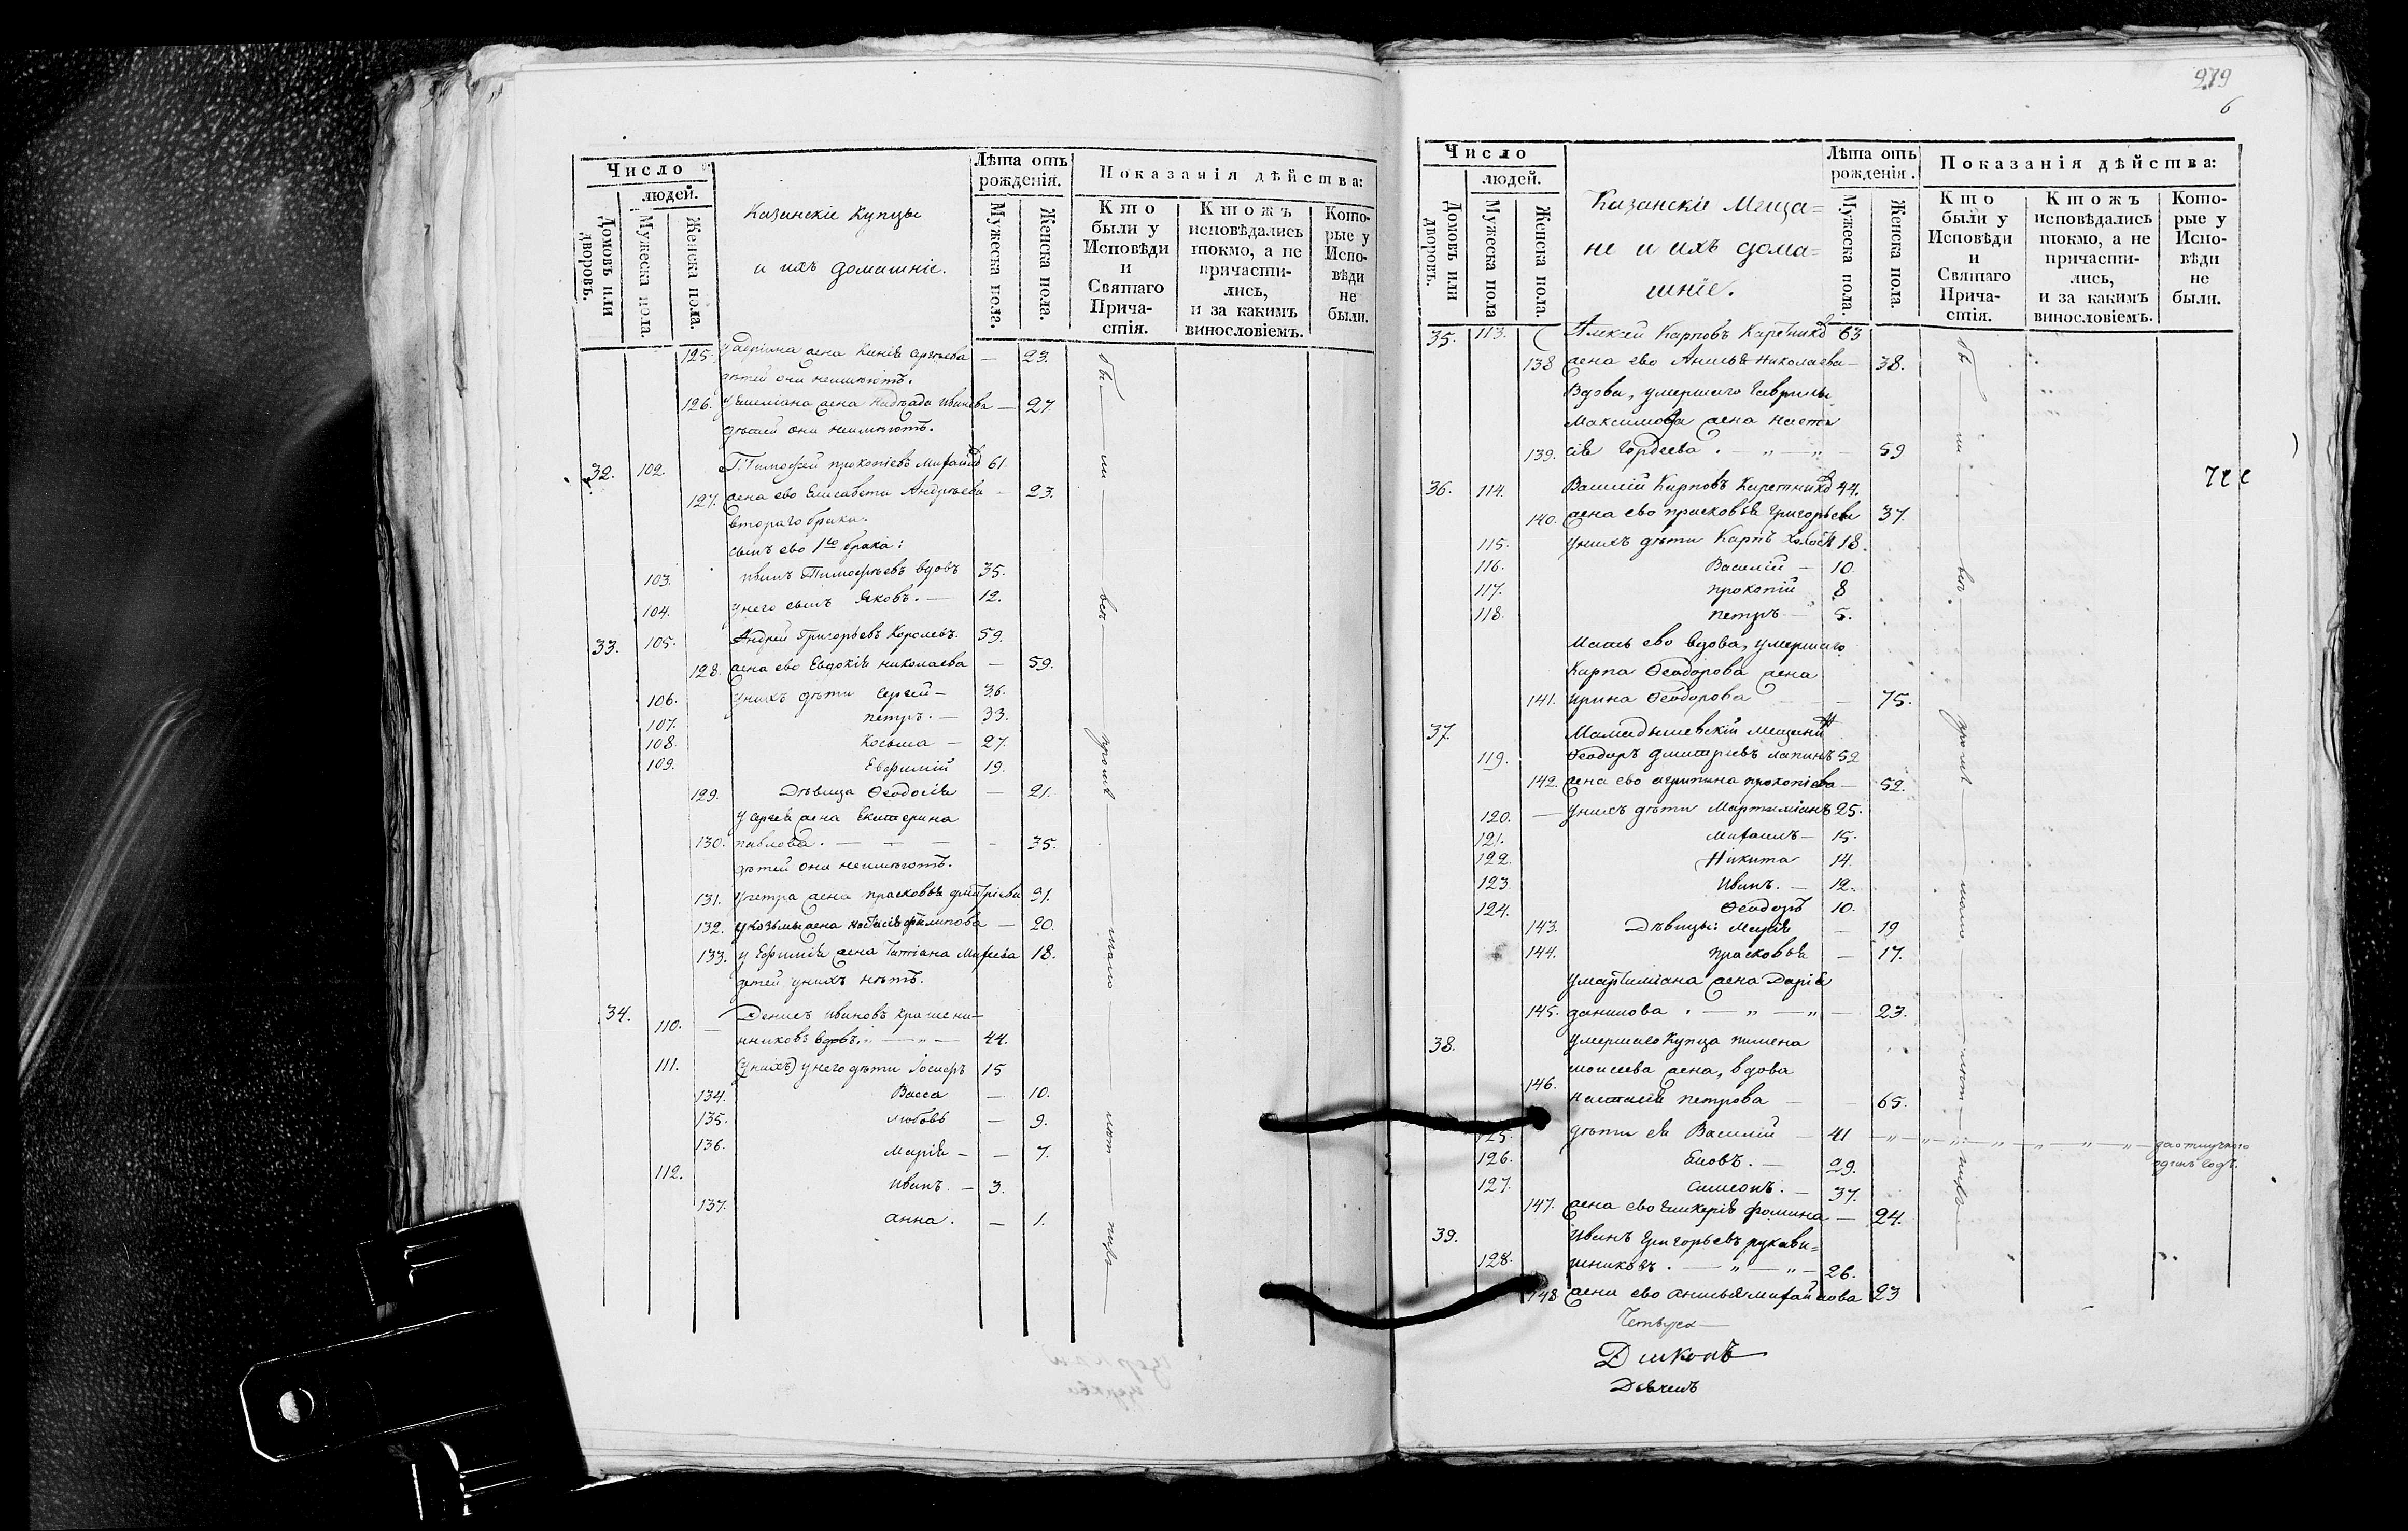 Число
людей.
Домовъ или дворовъ.
Мужеска пола.
Женска пола.
Казанскіе Купцы
и ихъ домашніе.
Лѣта отъ рожденія.
Мужеска пола.
Женска пола.
Показанія дѣйства:
Кто были у Исповѣди и Святаго Прича-стія.
Ктожъ исповѣдались токмо, а не причасти-лись, и за какимъ винословіемъ.
Кото-рые у Испо-вѣди не были.
125. жена Ксенія Сергѣева — 23.
дѣтей они неимѣютъ.
126. У Емеліана жена Надежда Иванова — 27.
дѣтей они неимѣютъ.
32. 102. Тимофей Прокопіевъ 61.
127. жена ево Елисавета Андреева — 23.
втораго брака.
сынъ ево 1го брака:
103. Иванъ Тимофѣевъ вдовъ 35.
104. у него сынъ Яковъ. — 12.
33. 105. Андрей Григорьевъ Королевъ. 59.
128. жена ево Евдокія Николаева — 59.
106. у нихъ дѣти Сергей — 36.
107. Петръ. — 33.
108. Косьма — 27.
109. Евфимій 19.
129. Дѣвица Ѳеодосія — 21.
у Сергея жена Екатерина
130. Павлова. — — — — 35.
дѣтей они неимѣютъ.
131. у Петра жена Прасковья Дмитріева 21.
132. у Козьмы жена Настасія Филипова — 20.
133. у Ефимія жена Татіана Михеева 18.
детей у нихъ нѣтъ.
34. 110. — Денисъ Ивановъ Крашени-
нниковъ вдовъ. „ — „ — 44.
111. (у нихъ) у него дѣти Іосифъ 15
134. Васса — 10.
135. Любовь — 9.
136. Марія — — 7.
112. Иванъ. — 3.
137. Анна. — 1.
279
6
Число
людей.
Домовъ или дворовъ.
Мужеска пола
Женска пола.
Казанскіе Меща=
не и ихъ дома=
шніе.
Лѣта отъ рожденія.
Мужеска пола.
Женска пола.
Показанія дѣйства:
Кто были у Исповѣди и Святаго Прича-стія.
Ктожъ исповѣдались токмо, а не причасти-лись, и за какимъ винословіемъ.
Кото-рые у Испо-вѣди не были.
35. 113. Алексѣй Карповъ Каретниковъ 63
138 жена ево Анисья Николаева — 38.
Вдова, умершаго Гаврилы
Максимова жена Наста
139. сія Гордеева. — „ — „ — 59
36. 114. Василій Карповъ Каретниковъ 44.
140. жена ево Прасковья Григорьева 37.
115. у нихъ дѣти Карпъ холостъ 18.
116. Василій — 10.
117. Прокопій 8
118. Петръ — 5.
Мать ево вдова, умершаго
Карпа Ѳеодорова жена
141. Ирина Ѳеодорова — — 75.
37. Мамадышевскій мещанинъ
119. Ѳеодоръ Дмитріевъ Лапинъ 52
142. жена ево Агрипина Прокопіева — 52.
120. — у нихъ дѣти Мартиміанъ 25.
121. Михаилъ — 15.
122. Никита 14.
123. Иванъ. — 12.
124. Ѳеодоръ 10.
143. Дѣвицы: Марія — 19
144. Прасковья — 17.
у Мартиміана жена Дарія
145. Данилова. — „ — „ — 23.
38. умершаго Купца Пимена
146. Моисеева жена, вдова
Настасія Петрова — — 65.
125. дѣти ея Василій — 41 — „ — „ — „ — за отлучкою
одинъ годъ.
126. Іовъ. — 29.
127. Симеонъ. — 37.
147. жена ево Гликерія Фомина — 24.
39. Иванъ Григорьевъ Рукави=
128. шниковъ. — „ — „ — 26.
148 жена ево Анисья Михайлова 23
Діаконъ